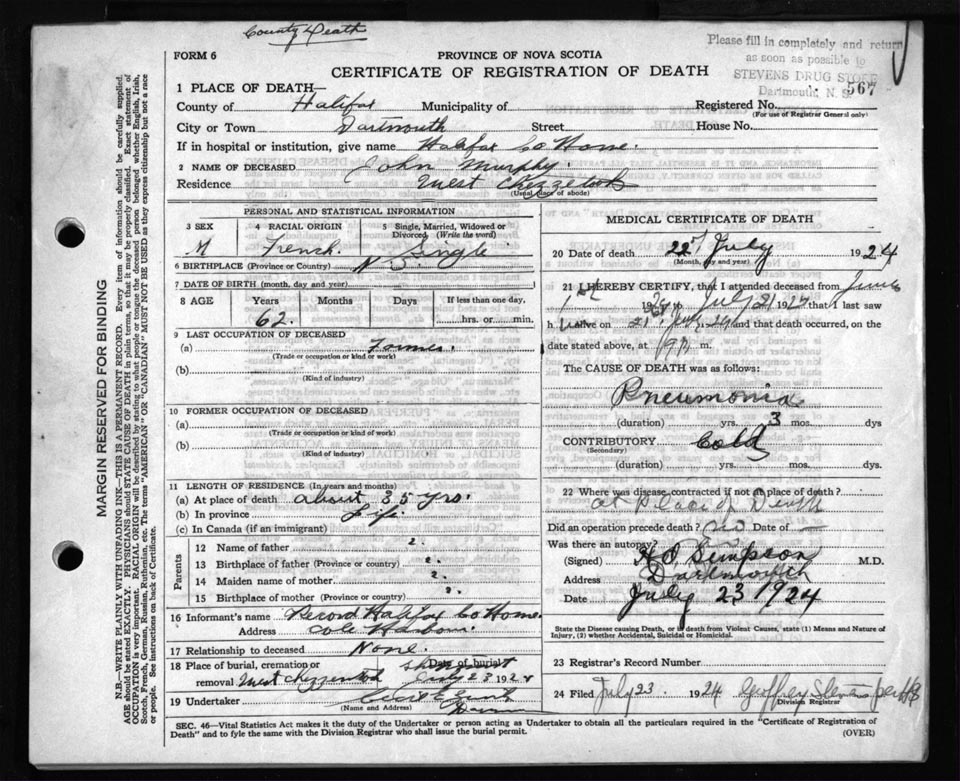 County Death
FORM 6
PROVINCE OF NOVA SCOTIA
CERTIFICATE OF REGISTRATION OF DEATH
Please fill in completely and return
as soon as possible to
STEVENS DRUG STORE
Dartmouth, N. S.
567
1 PLACE OF DEATH—
County of Halifax Municipality of Registered No.
(For use of Registrar General only)
City or Town Dartmouth Street House No.
If in hospital or institution, give name Halifax Co Home.
2 NAME OF DECEASED John Murphy.
Residence West Chezzetcook
(Usual place of abode)
PERSONAL AND STATISTICAL INFORMATION
3 SEX 4 RACIAL ORIGIN 5 Single, Married, Widowed or
Divorced (Write the word)
M French. Single
6 BIRTHPLACE (Province or Country) N S.
7 DATE OF BIRTH (month, day and year)
8 AGE Years Months Days If less than one day,
62. hrs. or min.
9 LAST OCCUPATION OF DECEASED
(a) Farmer.
(Trade or occupation or kind or work)
(b)
(Kind of industry)
10 FORMER OCCUPATION OF DECEASED
(a)
(Trade or occupation or kind or work)
(b)
(Kind of industry)
11 LENGTH OF RESIDENCE (In years and months)
(a) At place of death about 35 yrs.
(b) In province Life.
(c) In Canada (if an immigrant)
Parents
12 Name of father ?.
13 Birthplace of father (Province or country) ?.
14 Maiden name of mother ?.
15 Birthplace of mother (Province or country) ?.
16 Informant's name Record Halifax Co Home.
Address Cole Harbour.
17 Relationship to deceased None.
18 Place of burial, cremation or Date of burial
removal West Chezzetcook July 23 1924
19 Undertaker
(Name and Address)
MEDICAL CERTIFICATE OF DEATH
20 Date of death 22 July 1924
(Month, day and year)
21 I HEREBY CERTIFY, that I attended deceased from June
1st 1924 to July 21 1924 that I last saw
h im alive on 21 July 24 and that death occurred, on the
date stated above, at m.
The CAUSE OF DEATH was as follows:
Pneumonia
(duration) yrs. 3 mos. dys
CONTRIBUTORY Cold
(Secondary)
(duration) yrs. mos. dys.
22 Where was disease contracted if not a place of death?
At Place of Death
Did an operation precede death? No Date of —
Was there an autopsy?
(Signed) H. O. Simpson M.D.
Address Dartmouth
Date July 23 1924
State the Disease causing Death, or in death from Violent Causes, state (1) Means and Nature of
Injury, (2) whether Accidental, Suicidal or Homicidal.
23 Registrar's Record Number
24 Filed July 23 1924 Geoffrey Stevens per HS
Division Registrar
SEC. 46—Vital Statistics Act makes it the duty of the Undertaker or person acting as Undertaker to obtain all the particulars required in the "Certificate of Registration of
Death" and to fyle the same with the Division Registrar who shall issue the burial permit. (OVER)
MARGIN RESERVED FOR BINDING
N.B.—WRITE PLAINLY WITH UNFADING INK—THIS IS A PERMANENT RECORD. Every item of information should be carefully supplied.
AGE should be stated EXACTLY. PHYSICIANS should STATE CAUSE OF DEATH in plain terms, so that it may be properly classified. Exact statement of
OCCUPATION is very important. RACIAL ORIGIN will be described by stating to what people or tongue the deceased person belonged whether English, Irish,
Scotch, French, German, Russian, Ruthenian, etc. The terms "AMERICAN" OR "CANADIAN" MUST NOT BE USED as they express citizenship but not a race
or people. See instructions on back of Certificate.